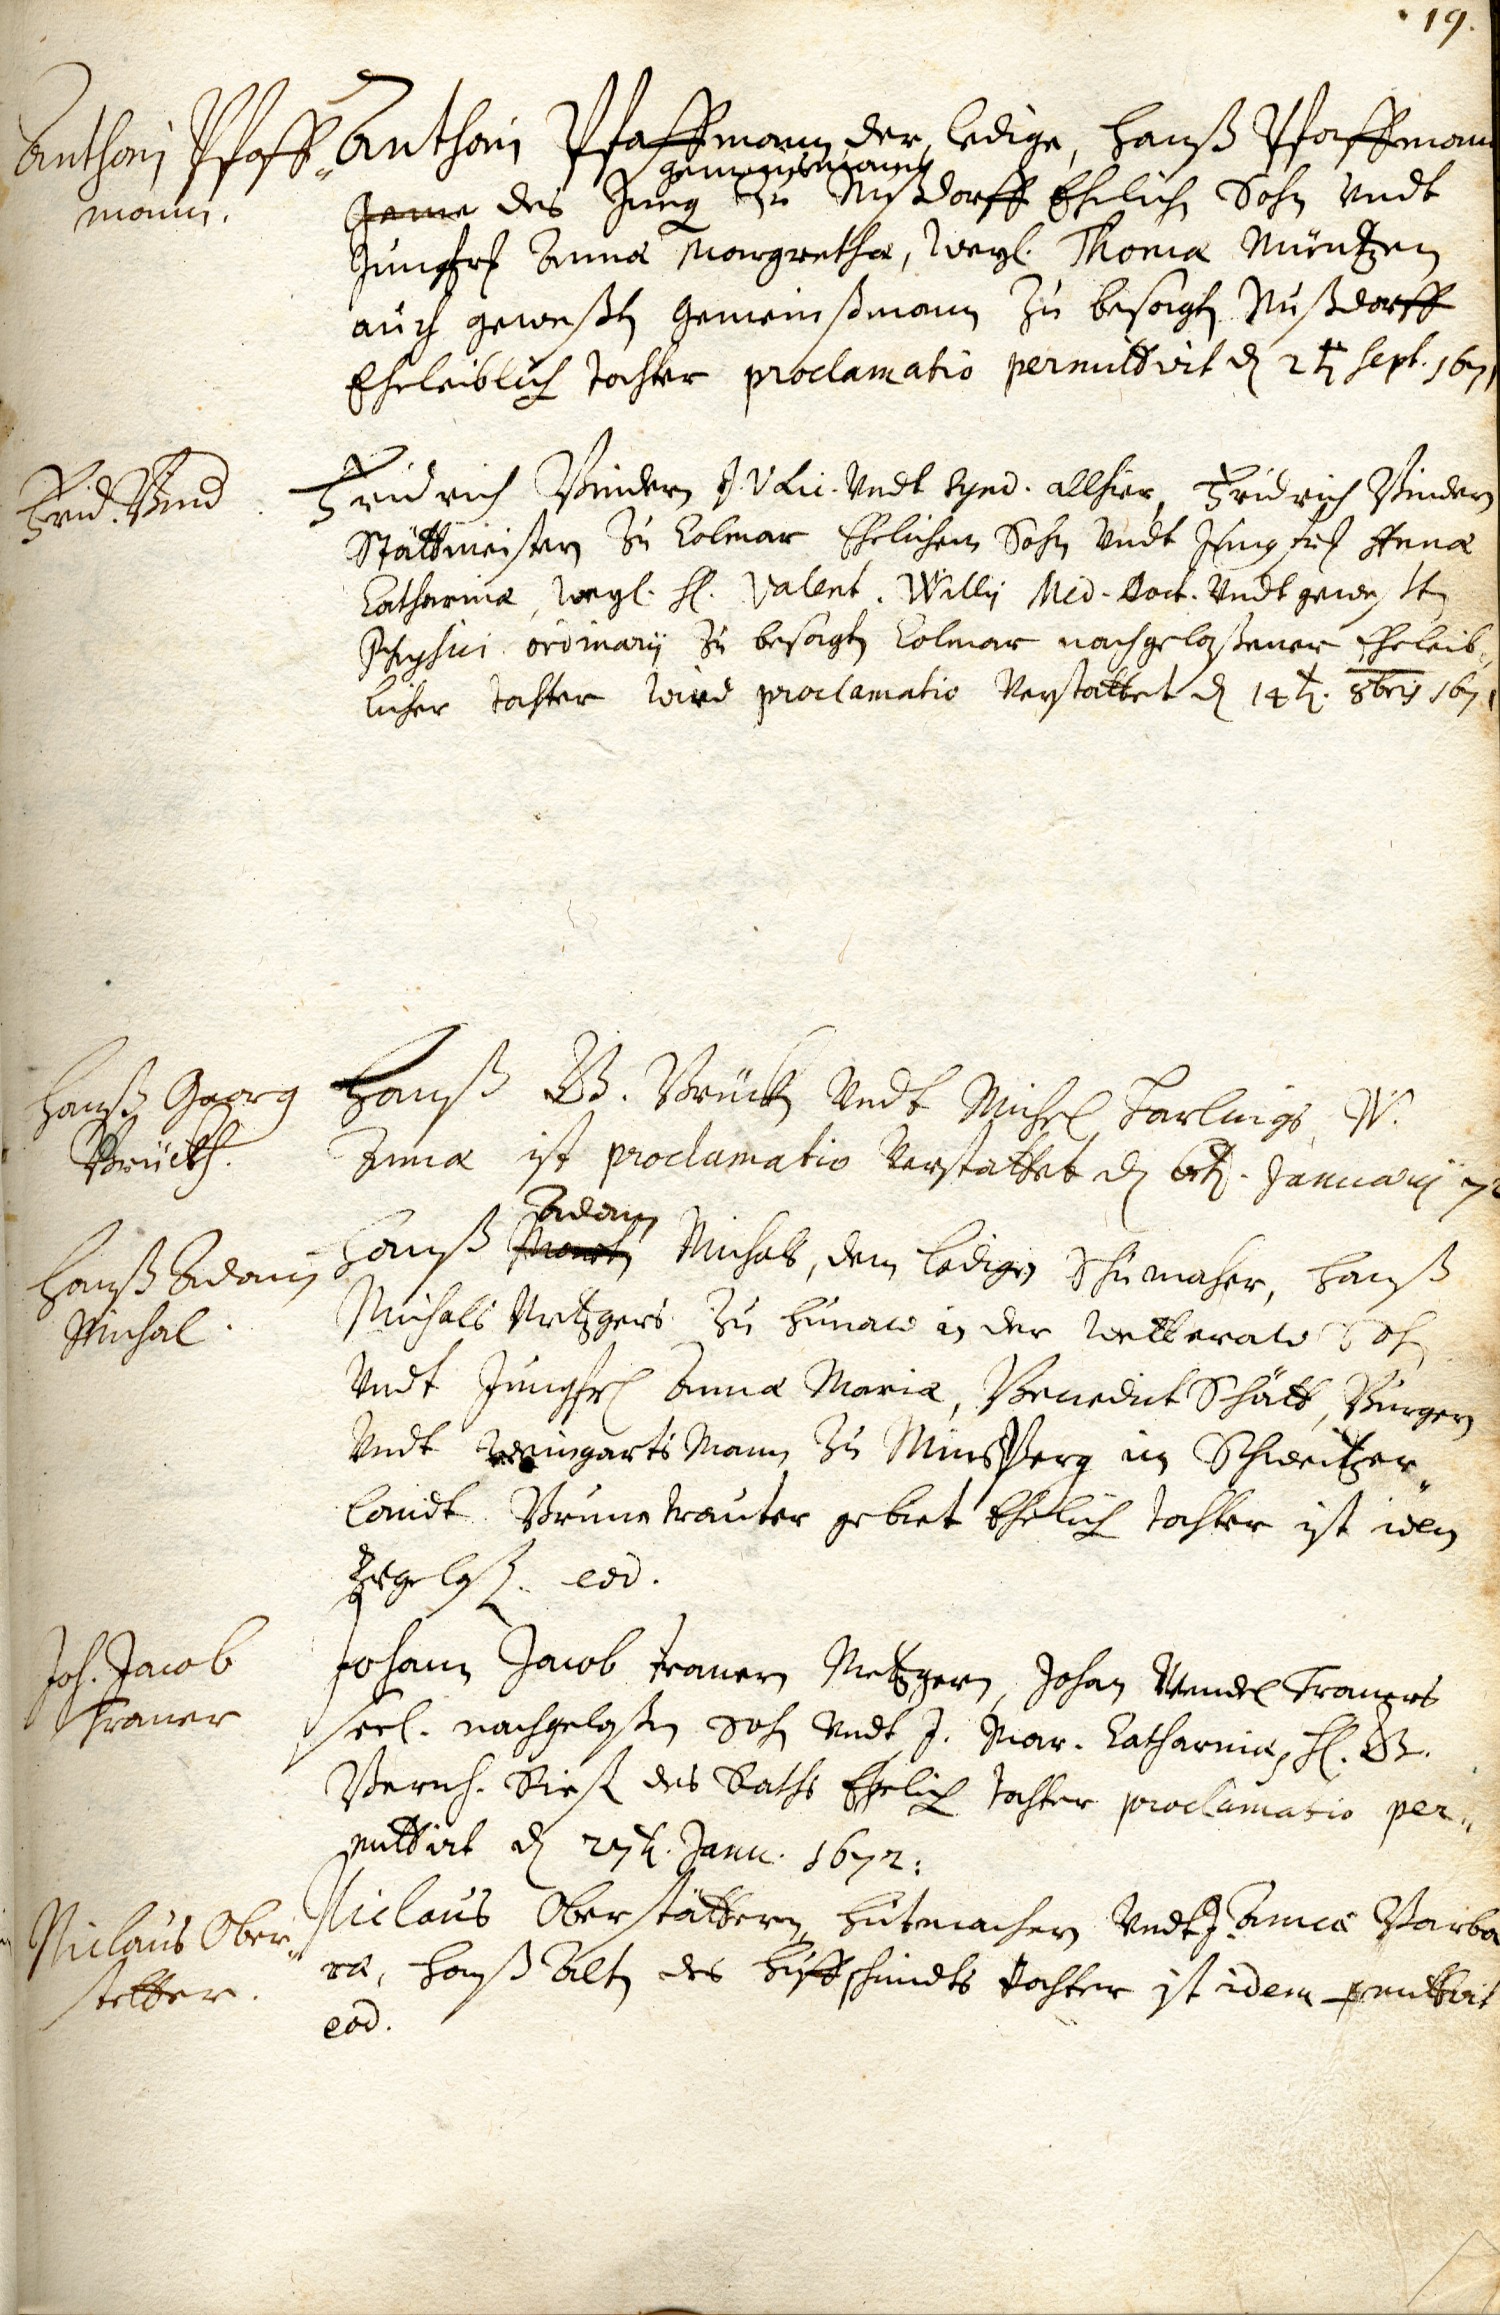 19.
Anthoni Pfaff„
mann.
Anthoni Pfaffmann der ledige, Hanß Pfaffmann
gemeinsmans
Geme des Jung zu Nußdorff Ehelich Sohn Undt
Jungfrl Anna Margretha, weyl. Thoma Müntzen
auch geweßten gemeinßmann zu besagten Nußdorff
Eheleiblich tochter proclamatio permittirt den 2ten Sept. 1671
Frid. Bind
Fridrich Bindern J. V. Lic. Undt Synd. allhier, Fridrich Bindern
Stättmeistern zu Colmar Ehelichem Sohn Undt Jungfrl Anna
Catharina, weyl. H. Valent. Willii Med. Doct. Undt gewesten
Physici ordinarii zu besagten Colmar nachgelaßener Eheleib„
licher tochter wird proclamatio verstattet den 14ten. 8bris 1671
Hanß Georg
Brückh.
Hanß G. Brückh Undt Michel W.
Anna ist proclamatio verstattet den 6ten. Januarii 72
Hanß Adam
Michal.
Adam
Hanß Michals, dem ledigen Schumacher, Hanß
Michals Metzgers zu Hunaw in der Wetteraw Sohn
Undt Jungfrl Anna Maria, Benedict Schätt, Burgern
Undt Weingarts Mann zu Minsperg im Schweitzer„
landt Bruntrauter gebiet Ehelich tochter ist idem
zugelaß. eod.
Joh. Jacob
Traner
Johann Jacob Tranern Metzgern, Johan Wendel Traners
seel. nachgelaßen Sohn Undt J. Mar. Catharina, H. G.
Bernh. des Raths Ehelich tochter proclamatio per„
mittirt den 27ten. Janu. 1672.
Niclaus Ober„
stetter.
Niclaus Oberstättern, Hutmachern Undt J. Anna Barba
ra, Hanß Alten des Huffschmidts tochter ist idem permittirt
eod.